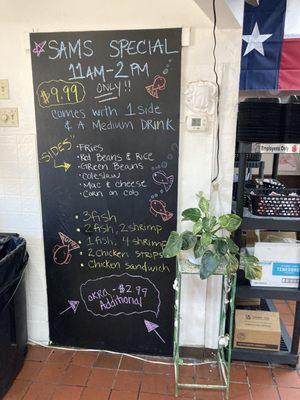 SAMS SPECIAL
11AM-2PM
$9.99 ONLY!!
Comes with 1 side
& A Medium Drink
SIDES
• Fries
• Red Beans & Rice
• Green Beans
• Coleslaw
• Mac & cheese
• Corn on cob
• 3 fish
• 2 fish, 2 shrimp
• 1 fish, 4 shrimp
• 2 Chicken Strips
• Chicken Sandwich
OKRA - $2.99
Additional
Employees Only